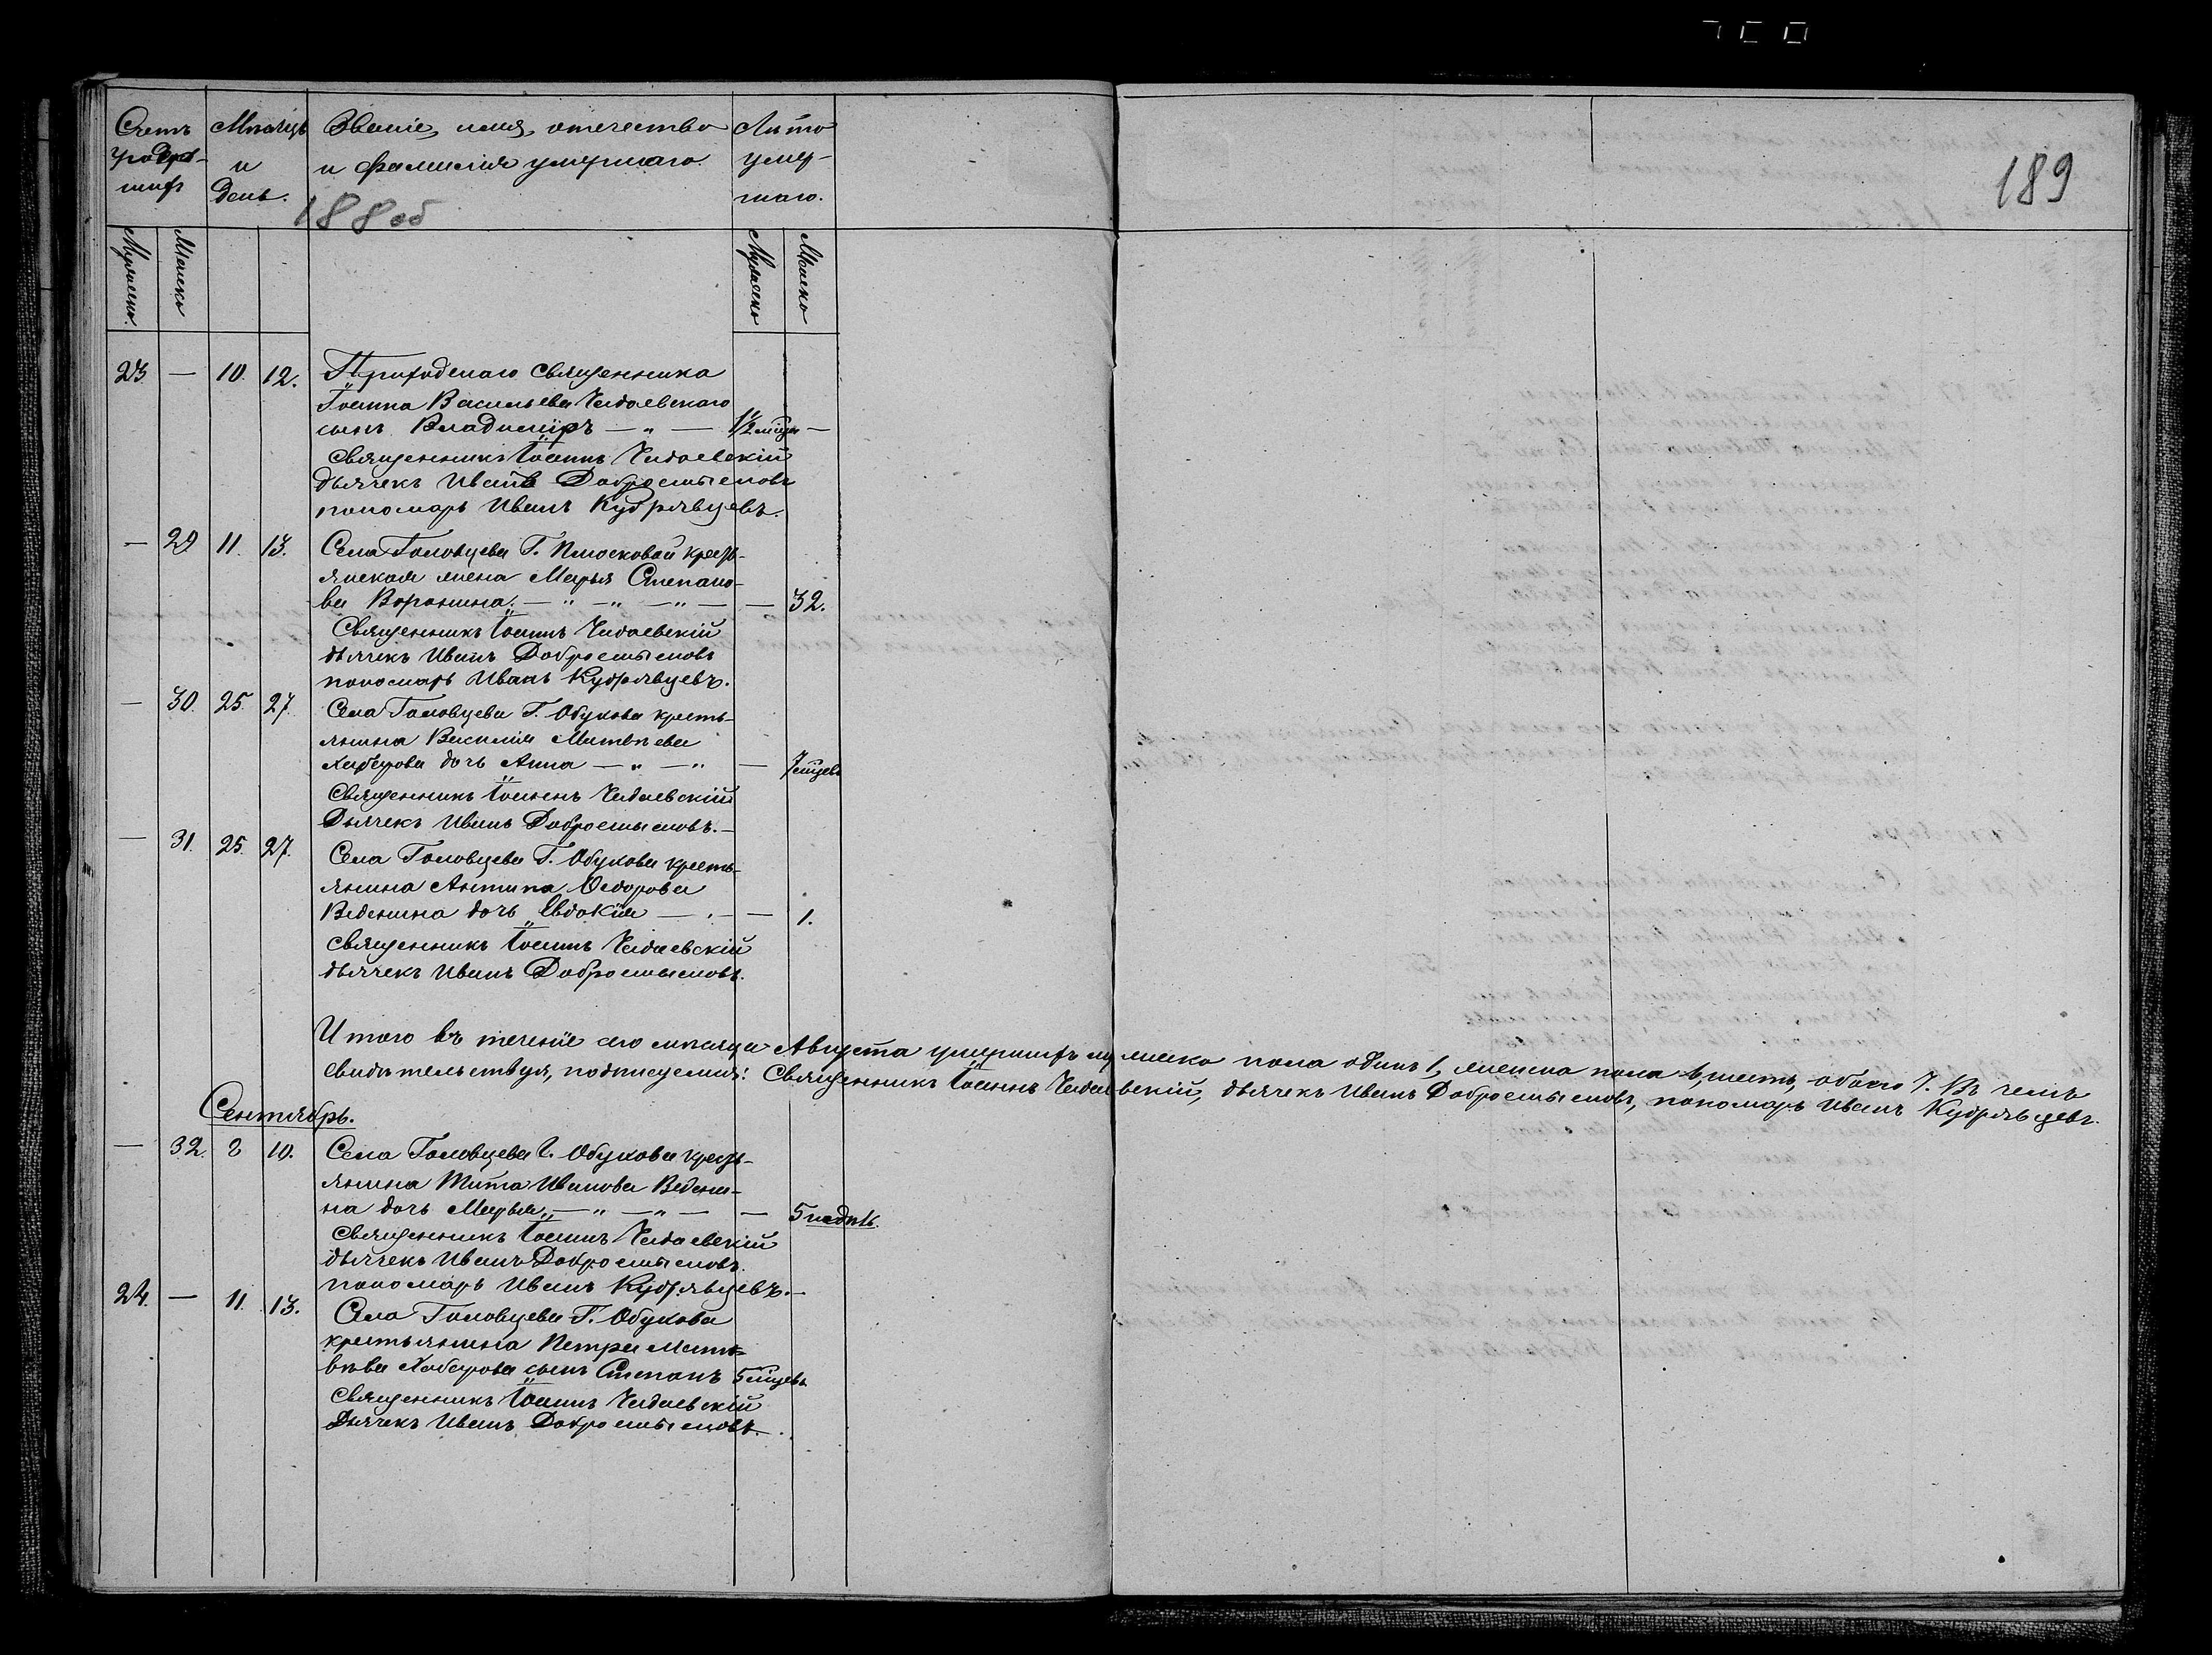 189
Счетъ умер- Мѣсяцъ Званіе, имя, отчество Лѣто
шихъ и и фамилія умершаго. умер-
день. шаго.
188 об
Мужеска. Женска Мужеска Женска
23. — 10. 12. Приходскаго священника
Іоанна Васильева Чадаевскаго
сынъ Владиміръ — " — 1½ мѣсяц —
Священникъ Іоаннъ Чадаевскій
дьячекъ Иванъ Добросмысловъ
пономарь Иванъ Кудрявцевъ.
— 29 11. 13. Села Головцева Г. кресть-
янская жена Марья Степано-
ва Воронина. — " — " — " — — 32.
Священникъ Іоаннъ Чадаевскій
дьячекъ Иванъ Добросмысловъ
пономарь Иванъ Кудрявцевъ.
— 30. 25. 27. Села Головцева Г. Обухова кресть-
янина Василія Матвѣева
Хабарова дочь Анна — " — " — 7 мѣсцевъ
Священникъ Іоаннъ Чадаевскій
Дьячекъ Иванъ Добросмысловъ. —
— 31. 25. 27. Села Головцева Г. Обухова кресть-
янина Антипа Ѳедорова
Веденина дочь Евдокія — . — — 1.
Священникъ Іоаннъ Чадаевскій
дьячекъ Иванъ Добросмысловъ.
Итого въ теченіе сего мѣсяца Августа умершихъ мужеска пола одинъ 1, женска пола 6, шесть, обоего 7. Въ чемъ
свидѣтельствуя, подписуемся: Священникъ Іоаннъ Чадаевскій, дьячекъ Иванъ Добросмысловъ, пономарь Иванъ Кудрявцевъ.
Сентябрь.
— 32. 8 10. Села Головцева Г. Обухова кресть-
янина Тита Иванова Ведени-
на дочь Марья, — " — " — — 5 недѣль.
Священникъ Іоаннъ Чадаевскій
дьячекъ Иванъ Добросмысловъ.
пономарь Иванъ Кудрявцевъ. —
24. — 11. 13. Села Головцева Г. Обухова
крестьянина Петра Мат-
вѣева Хабарова сынъ Степанъ 5 мѣсцевъ
Священникъ Іоаннъ Чадаевскій
Дьячекъ Иванъ Добросмысловъ.